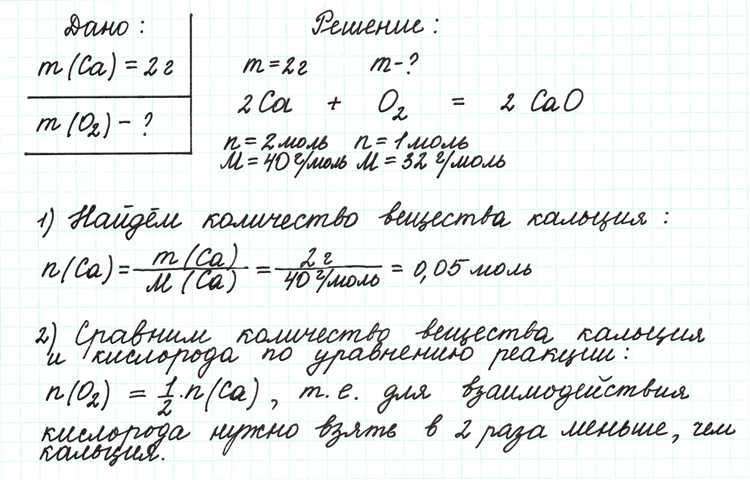 Дано: Решение:
m(Ca) = 2 г m = 2 г m - ?
m(O₂) - ? 2 Ca + O₂ = 2 CaO
n = 2 моль n = 1 моль
M = 40 г/моль M = 32 г/моль
1) Найдём количество вещества кальция:
n(Ca) = m(Ca)/M(Ca) = 2 г/40 г/моль = 0,05 моль
2) Сравним количество вещества кальция
и кислорода по уравнению реакции:
n(O₂) = 1/2 · n(Ca), т.е. для взаимодействия
кислорода нужно взять в 2 раза меньше, чем
кальция.